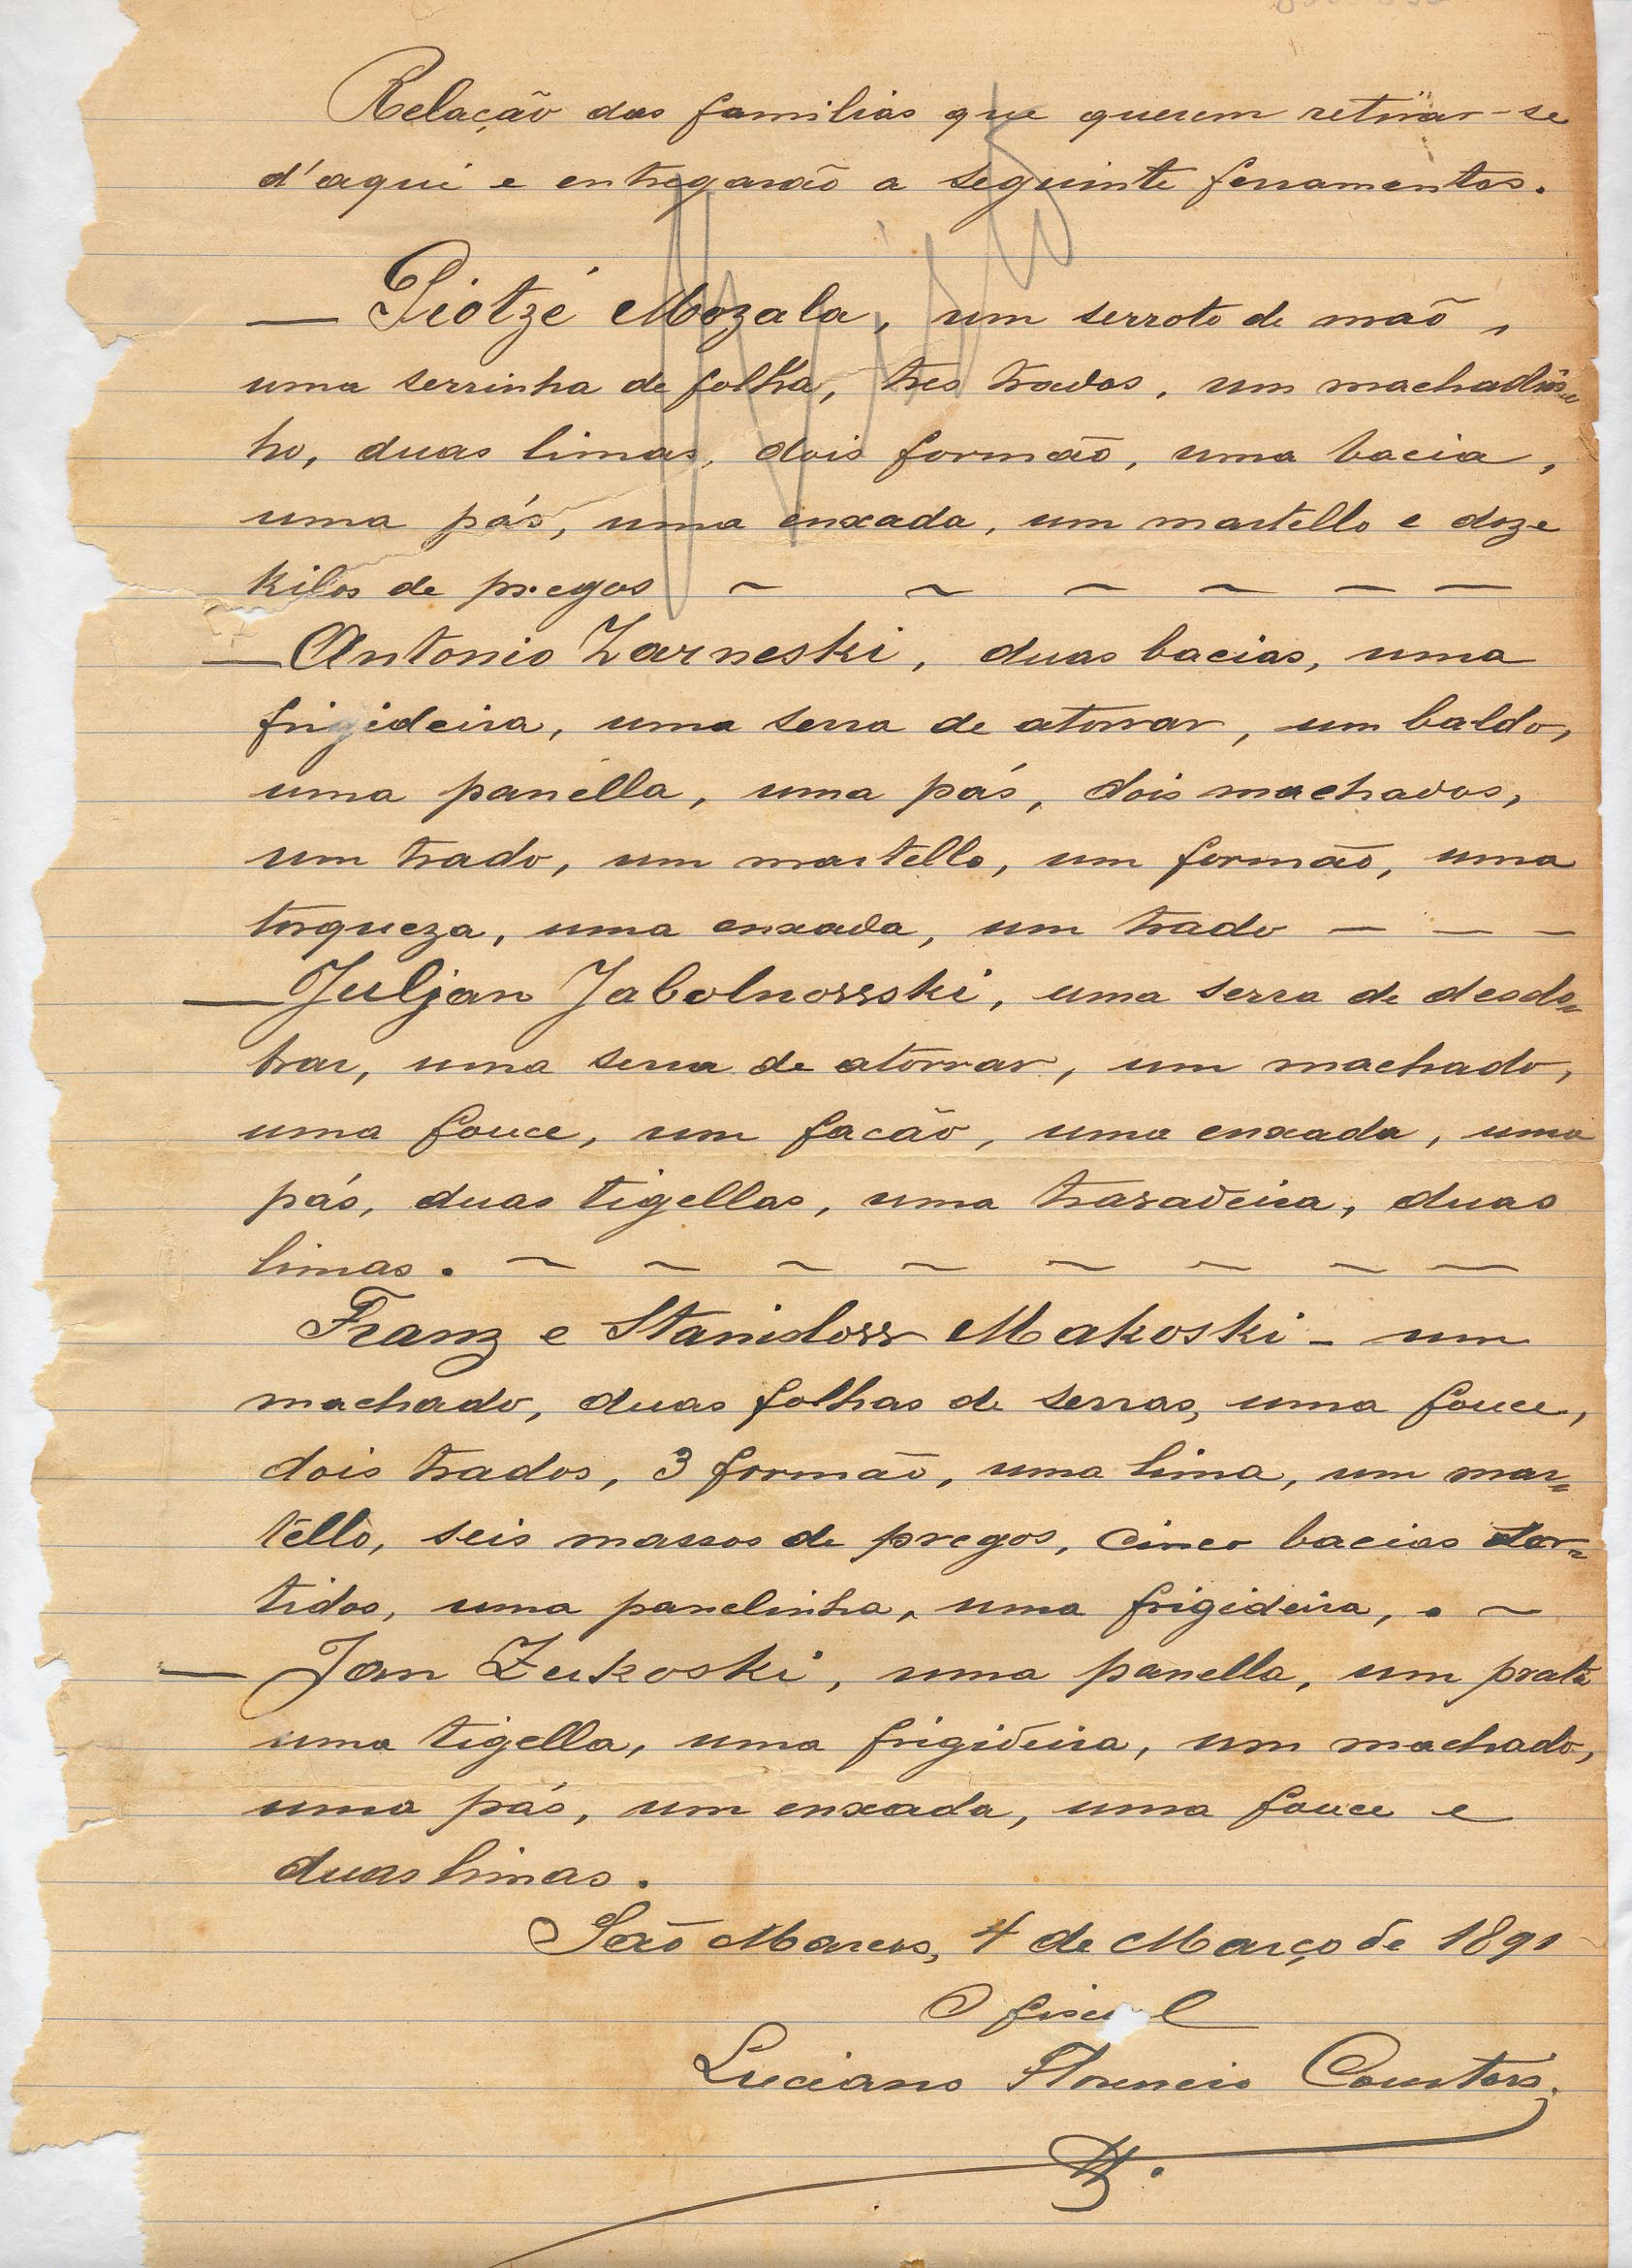 Relação das familias que querem retirar-se
d'aqui e entregarão a seguinte ferramentas.
— Piotzé Mozala, um serrote de maõ,
uma serrinha de folha, tres trados, um machadin=
ho, duas limas, dois formão, uma bacia,
uma pás, uma enxada, um martello e doze
kilos de pregos ~ ~ ~ ~ — —
— Antonio Zarneski, duas bacias, uma
frigideira, uma serra de atorrar, um baldo,
uma panélla, uma pás, dois machados,
um trado, um martello, um formão, uma
torqueza, uma enxada, um trado — — —
— Juljan Jabolnossski, uma serra de desdo=
brar, uma serra de atorrar, um machado,
uma fouce, um facão, uma enxada, uma
pás, duas tigellas, uma travadeira, duas
limas. ~ ~ ~ ~ ~ ~ ~ —
Franz e Stanisloss Makoski - um
machado, duas folhas de serras, uma fouce,
dois trados, 3 formão, uma lima, um mar=
tello, seis massos de pregos, cinco bacias sor=
tidos, uma panelinha, uma frigideira, . ~
— Jan Zukoski, uma panella, um prato
uma tigella, uma frigideira, um machado,
uma pás, um enxada, uma fouce e
duas limas.
São Marcos, 4 de Março de 1891
O fiscal
Luciano Florencio